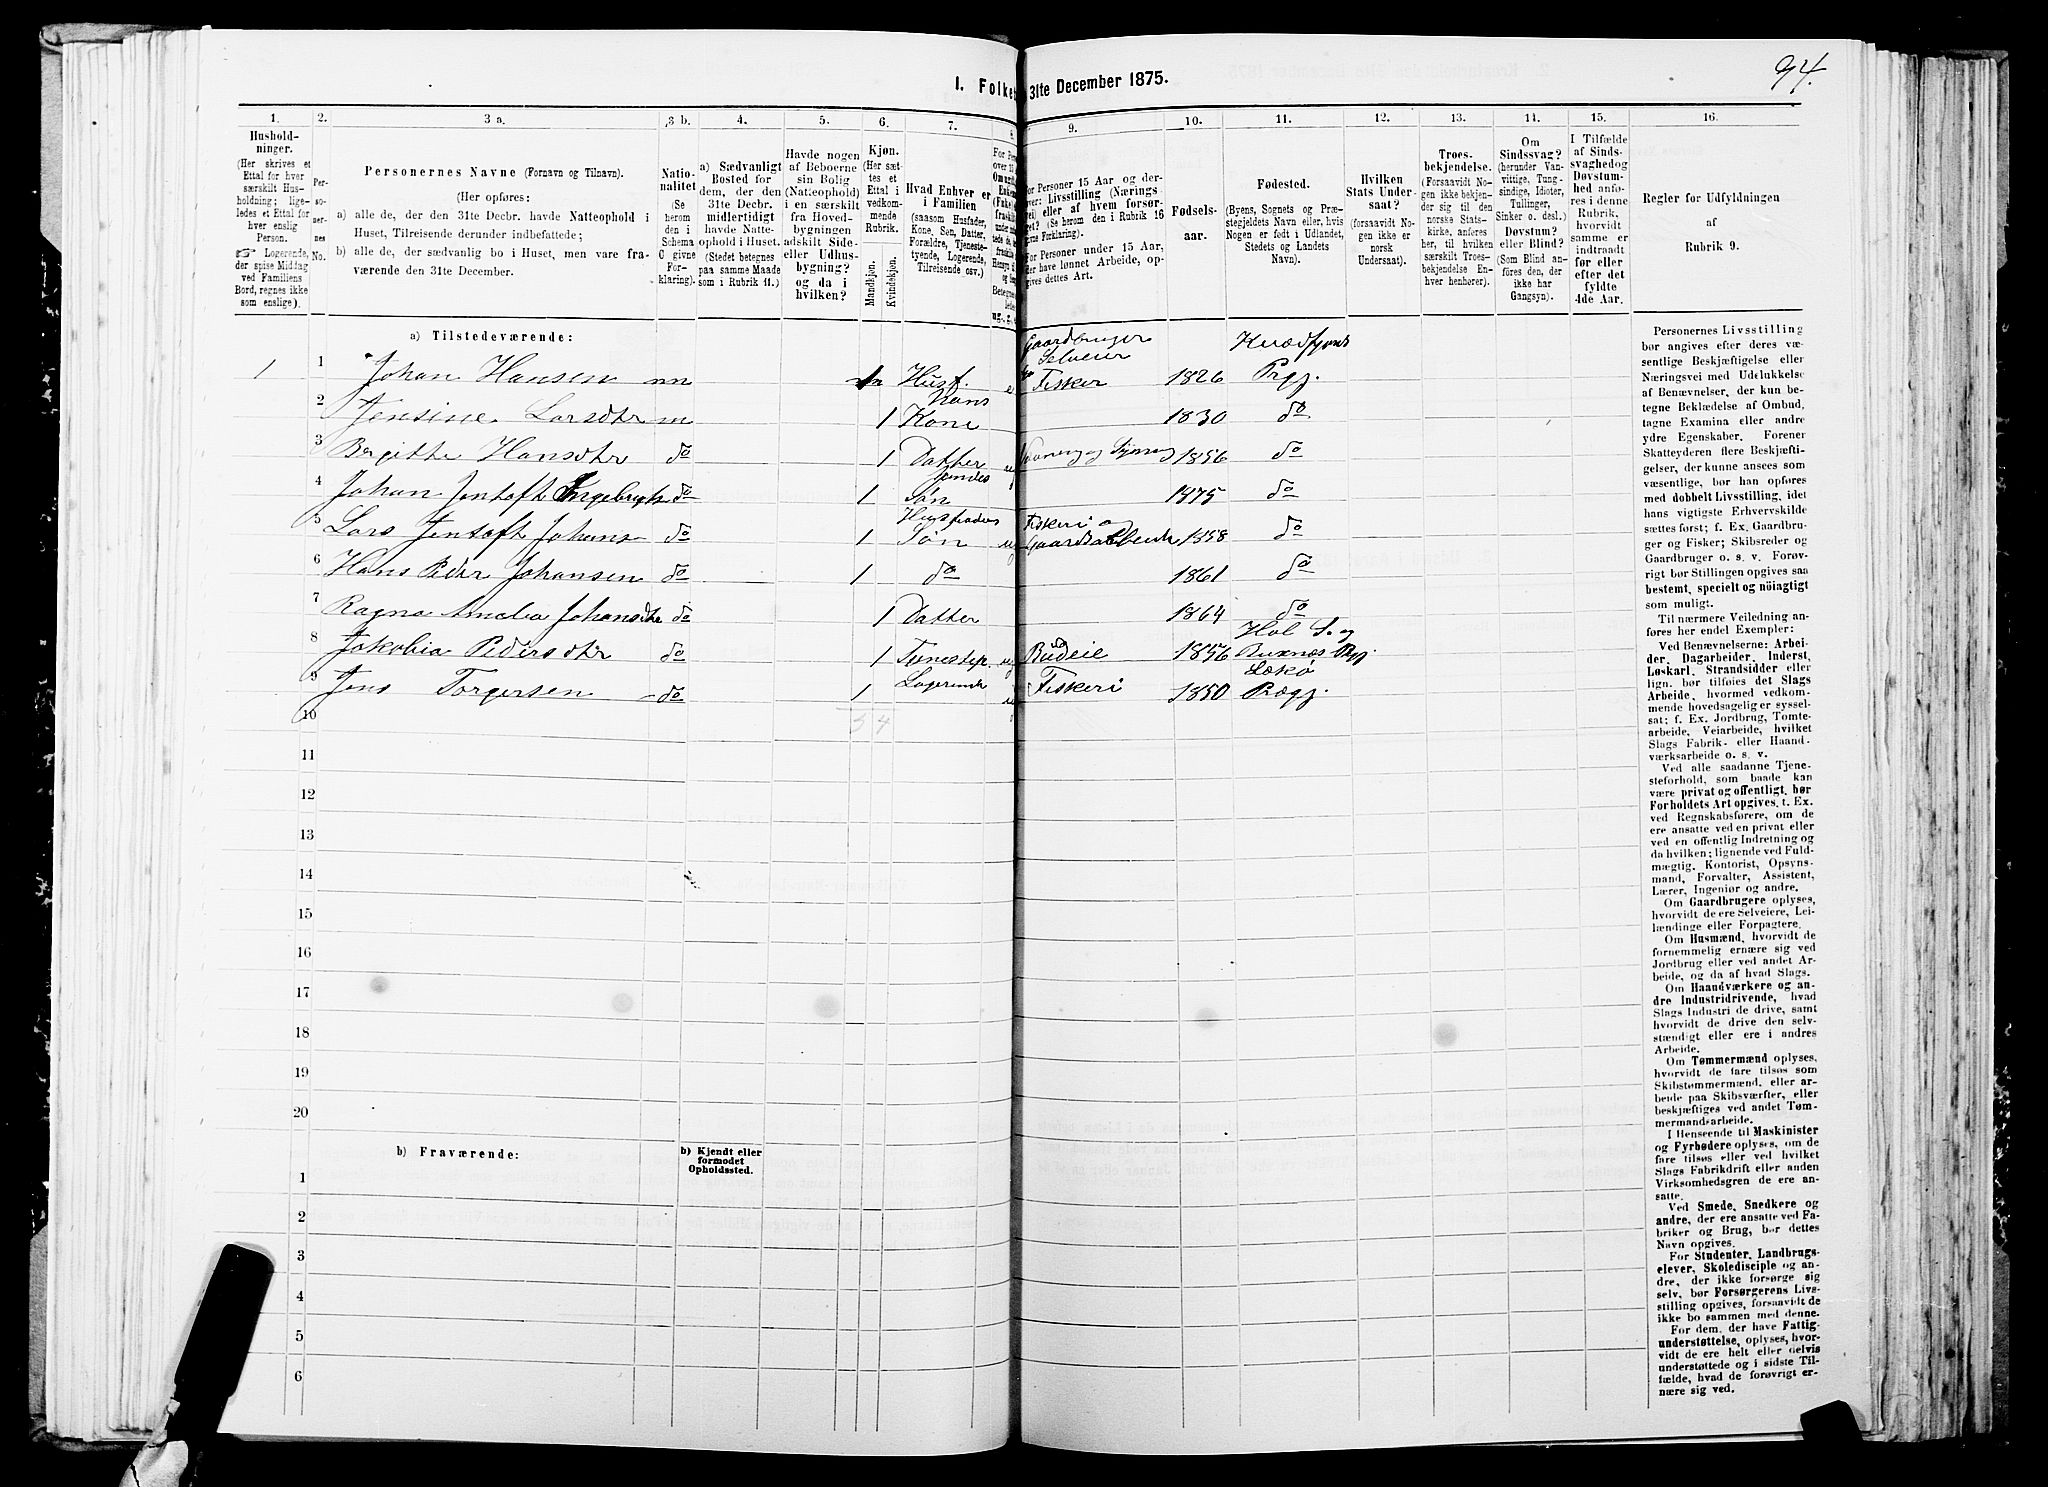 94.
1. Folket 31te December 1875.
1. 2. 3 a. 3 b. 4. 5. 6. 7. 8. 9. 10. 11. 12. 13. 14. 15. 16.
Hushold-
ninger.
(Her skrives et
Ettal for hver
særskilt Hus-
holdning; lige-
ledes et Ettal for
hver enslig
Person.
☞ Logerende,
der spise Middag
ved Familiens
Bord, regnes ikke
som enslige).
Per-
soner-
nes
No.
Personernes Navne (Fornavn og Tilnavn).
(Her opføres:
a) alle de, der den 31te Decbr. havde Natteophold i
Huset, Tilreisende derunder indbefattede;
b) alle de, der sædvanlig bo i Huset, men vare fra-
værende den 31te December.
Natio-
nalitet
(Se
herom
den i
Schema
C givne
For-
klaring).
a) Sædvanligt
Bosted for
dem, der den
31te Decbr.
midlertidigt
havde Natte-
ophold i Huset.
(Stedet betegnes
paa samme Maade
som i Rubrik 11.)
Havde nogen
af Beboerne
sin Bolig
(Natteophold)
i en særskilt
fra Hoved-
bygningen
adskilt Side-
eller Udhus-
bygning?
og da i
hvilken?
Kjøn.
(Her sæt-
tes et
Ettal i
vedkom-
mende
Rubrik.
Mandkjøn.
Kvindekjøn.
Hvad Enhver er
i Familien
(saasom Husfader,
Kone, Søn, Datter,
Forældre, Tjeneste-
tyende, Logerende,
Tilreisende osv.)
For Personer 15 Aar og der-
over: Livsstilling (Nærings-
vei) eller af hvem forsør-
get? (Se herom den i Rubrik 16
givne Forklaring).
For Personer under 15 Aar,
der have lønnet Arbeide, op-
gives dettes Art.
Fødsels-
aar.
Fødested.
(Byens, Sognets og Præ-
stegjeldets Navn eller, hvis
Nogen er født i Udlandet,
Stedets og Landets
Navn).
Hvilken
Stats Under-
saat?
(forsaavidt No-
gen ikke er
norsk
Undersaat).
Troes-
bekjendelse.
(Forsaavidt No-
gen ikke bekjen-
der sig til den
norske Stats-
kirke, anføres
her, til hvilken
særskilt Troes-
bekjendelse En-
hver henhører).
Om
Sindssvag?
(herunder Van-
vittige, Tung-
sindige, Idioter,
Tullinger,
Sinker o. desl.)
Døvstum?
eller Blind?
(Som Blind an-
føres den, der
ikke har
Gangsyn).
I Tilfælde
af Sinds-
svaghedog
Døvstum-
hed anfø-
res i denne
Rubrik,
hvorvidt
samme er
indtraadt
før eller
efter det
fyldte
4de Aar.
Regler for Udfyldningen
af
Rubrik 9.
a) Tilstedeværende:
1 1 Johan Hansen nn 1 Husf. Gaardbruger Selveier Fisker 1826 Kvædfjord Prgj.
2 Jensine Larsdtr n 1 hans Kone 1830 do
3 Birgitte Hansdtr do 1 Datter 1856 do
4 Johan Jentoft Ingebrigts do 1 Søn 1875 do
5 Lars Jentoft Johans do 1 Husfaders Søn Fiskeri og 1858 do
6 Hans Peder Johansen do 1 do 1861 do
7 Ragna Amelia Johansdtr do 1 Datter 1864 do
8 Jakobia Pedersdtr do 1 Tjenestep. Budeie 1856 Hol S. og Buxnes Pgj.
9 Jens Torgersen do 1 Logerende Fiskeri 1850 Lekø Prægj.
10 5 4
11
12
13
14
15
16
17
18
19
20
b) Fraværende:
b) Kjendt eller
formodet
Opholdssted.
1
2
3
4
5
6
Personernes Livsstilling
bør angives efter deres væ-
sentlige Beskjæftigelse eller
Næringsvei med Udelukkelse
af Benævnelser, der kun be-
tegne Beklædelse af Ombud,
tagne Examina eller andre
ydre Egenskaber. Forener
Skatteyderen flere Beskjæfti-
gelser, der kunne ansees som
væsentlige, bør han opføres
med dobbelt Livsstilling, idet
hans vigtigste Erhvervskilde
sættes først; f. Ex. Gaardbru-
ger og Fisker; Skibsreder og
Gaardbruger o. s. v. Forøv-
rigt bør Stillingen opgives saa
bestemt, specielt og nöiagtigt
som muligt.
Til nærmere Veiledning an-
føres her endel Exempler:
Ved Benævnelserne: Arbei-
der, Dagarbeider, Inderst,
Løskarl, Strandsidder eller
lign. bør tilføies det Slags
Arbeide, hvormed vedkom-
mende hovedsagelig er syssel-
sat; f. Ex. Jordbrug, Tomte-
arbeide, Veiarbeide, hvilket
Slags Fabrik- eller Haand-
værksarbeide o. s. v.
Ved alle saadanne Tjene-
steforhold, som baade kan
være privat og offentligt, bør
Forholdets Art opgives, t. Ex.
ved Regnskabsførere, om de
ere ansatte ved en privat eller
ved en offentlig Indretning og
da hvilken; lignende ved Fuld-
mægtig, Kontorist, Opsyns-
mand, Forvalter, Assistent,
Lærer, Ingeniør og andre.
Om Gaardbrugere oplyses,
hvorvidt de ere Selveiere, Lei-
lændinge eller Forpagtere.
Om Husmænd, hvorvidt de
fornemmelig ernære sig ved
Jordbrug eller ved andet Ar-
beide, og da af hvad Slags.
Om Haandværkere og an-
dre Industridrivende, hvad
Slags Industri de drive, samt
hvorvidt de drive den selv-
stændigt eller ere i andres
Arbeide.
Om Tømmermænd oplyses,
hvorvidt de fare tilsøs som
Skibstømmermænd, eller ar-
beide paa Skibsværfter, eller
beskjæftiges ved andet Tøm-
mermandsarbeide.
I Henseende til Maskinister
og Fyrbødere oplyses, om de
fare tilsøs eller ved hvilket
Slags Fabrikdrift eller anden
Virksomhedsgren de ere an-
satte.
Ved Smede, Snedkere og
andre, der ere ansatte ved Fa-
briker og Brug, bør dettes
Navn opgives.
For Studenter, Landbrugs-
elever, Skoledisciple og an-
dre, der ikke forsørge sig
selv, bør Forsørgerens Livs-
stilling opgives, forsaavidt de
ikke bo sammen med denne.
For dem, der have Fattig-
understøttelse, oplyses, hvor-
vidt de ere helt eller delvis
understøttede og i sidste Til-
fælde, hvad de forøvrigt er-
nære sig ved.